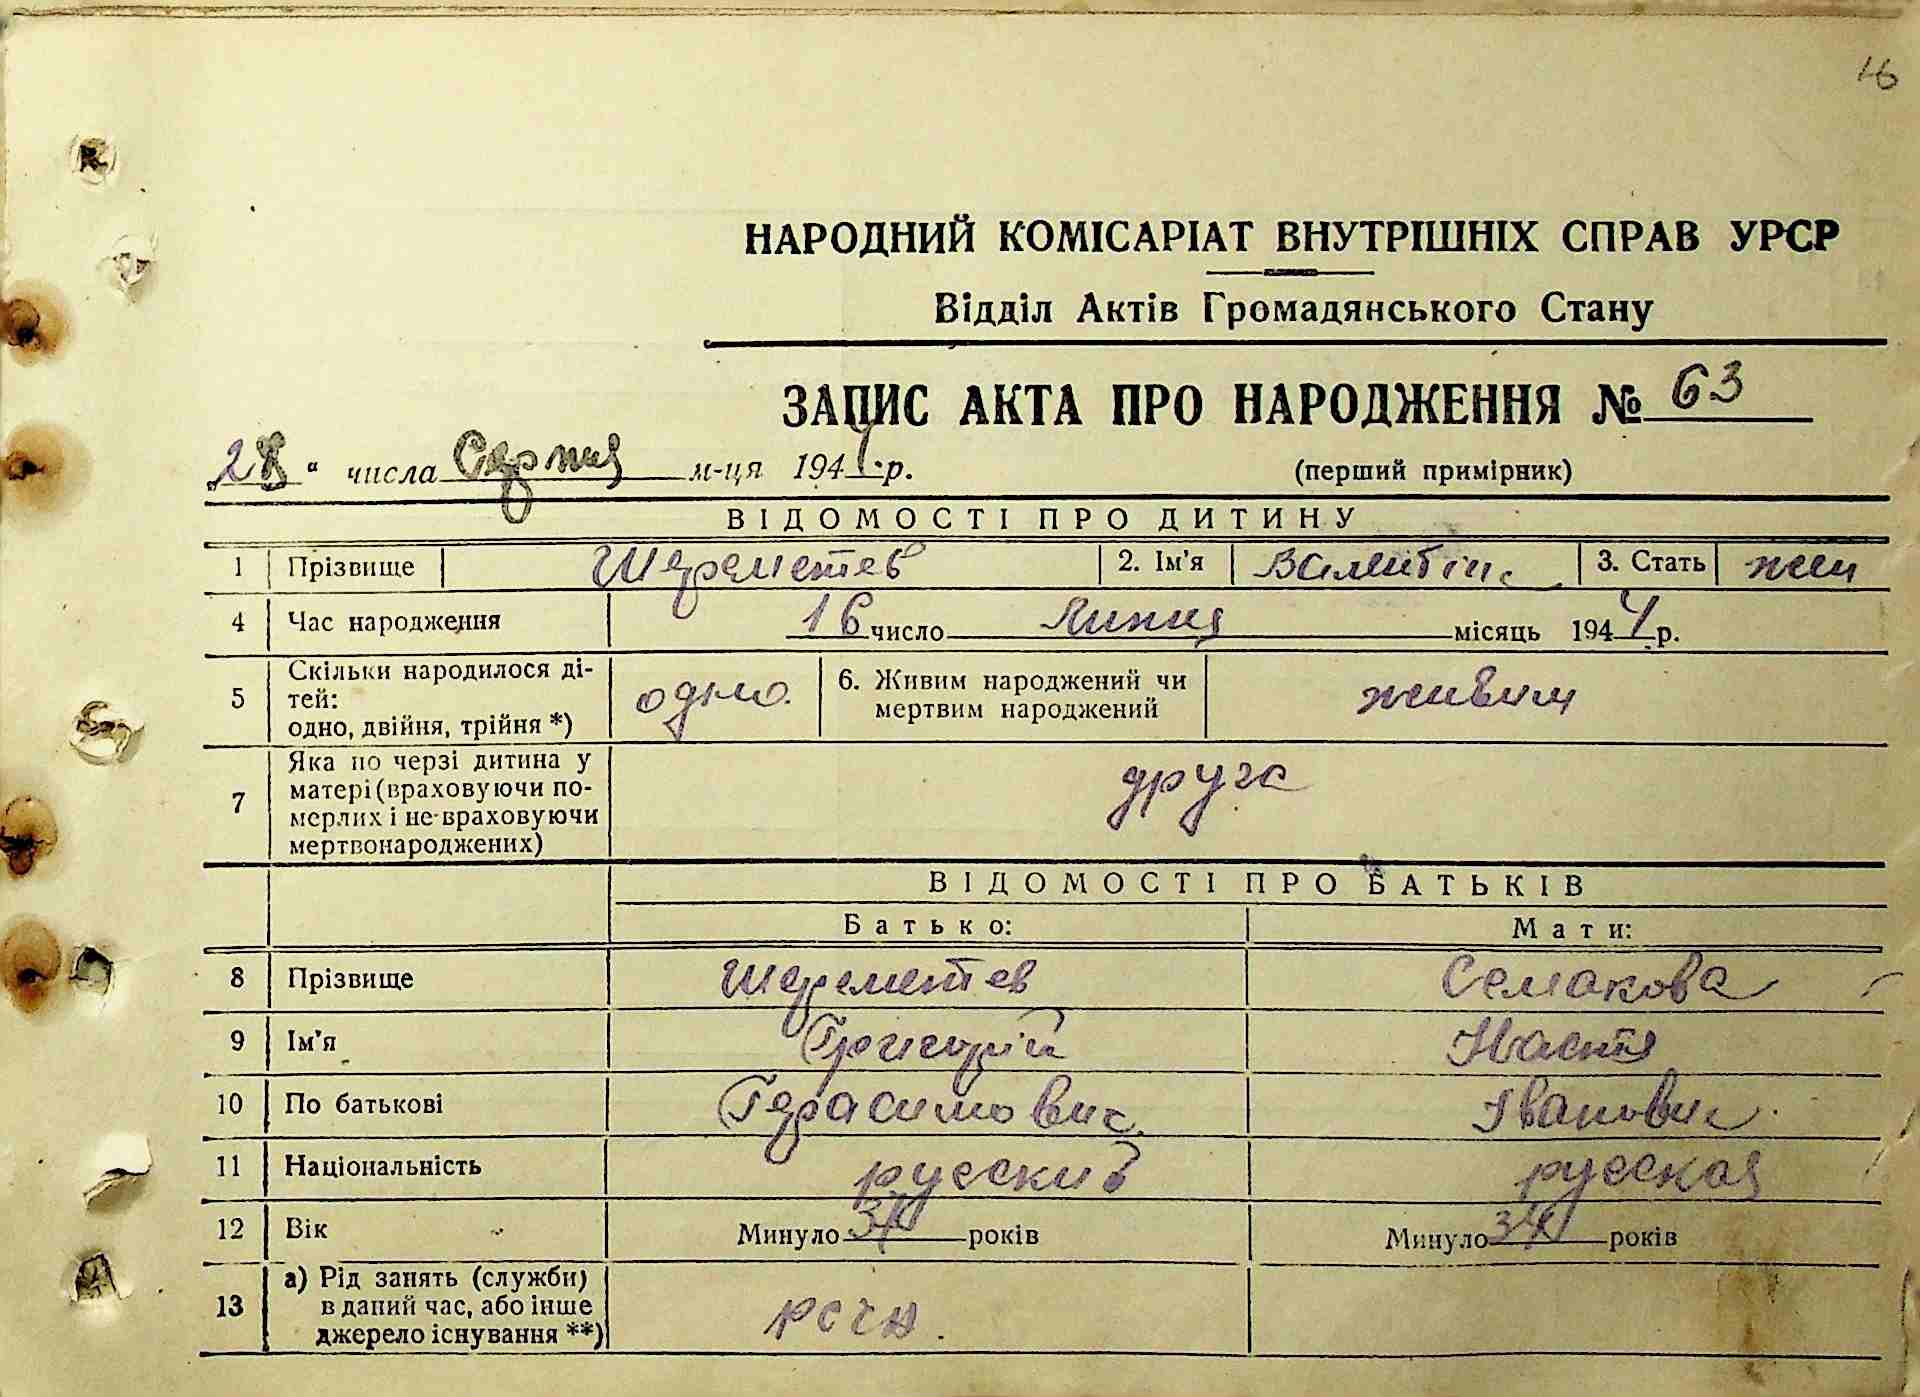 16
НАРОДНИЙ КОМІСАРІАТ ВНУТРІШНІХ СПРАВ УРСР
Відділ Актів Громадянського Стану
ЗАПИС АКТА ПРО НАРОДЖЕННЯ № 63
„28“ числа Серпня м-ця 1944 р. (перший примірник)
ВІДОМОСТІ ПРО ДИТИНУ
1 Прізвище Шереметев 2. Ім'я 3. Стать жін
4 Час народження 16 число Липня місяць 1944 р.
5 Скільки народилося ді-
тей:
одно, двійня, трійня *) одно. 6. Живим народжений чи
мертвим народжений живим
7 Яка по черзі дитина у
матері (враховуючи по-
мерлих і не враховуючи
мертвонароджених) друга
ВІДОМОСТІ ПРО БАТЬКІВ
Батько: Мати:
8 Прізвище Шереметев Семакова
9 Ім'я Григорій Настя
10 По батькові Герасимович Іванович
11 Національність русский русская
12 Вік Минуло років Минуло років
13 а) Рід занять (служби)
в даний час, або інше
джерело існування **) РСЧА.